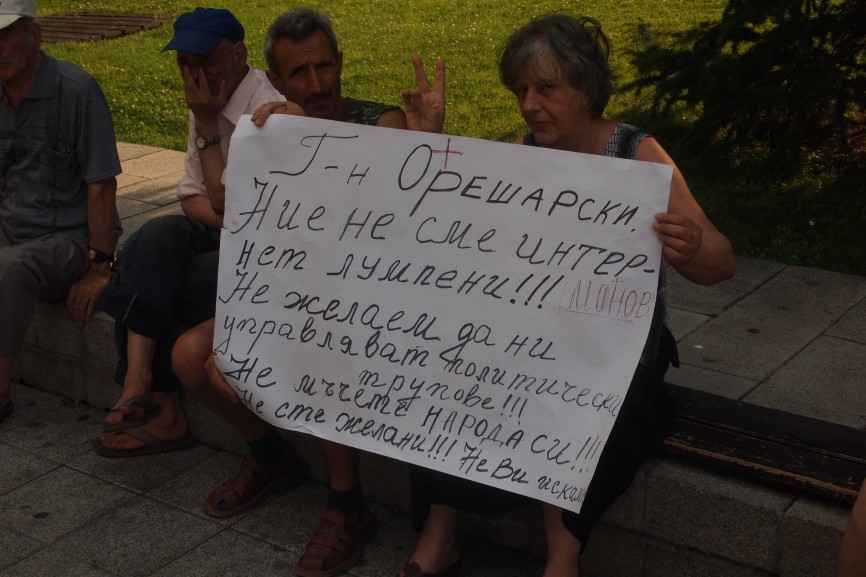 Г-н Орешарски,
Ние не сме интер-
нет лумпени!!! МОНОВ
Не желаем да ни
управляват политически
трупове!!!
Не мъчете НАРОДА си!!!
Не сте желани!!! Не Ви искаме